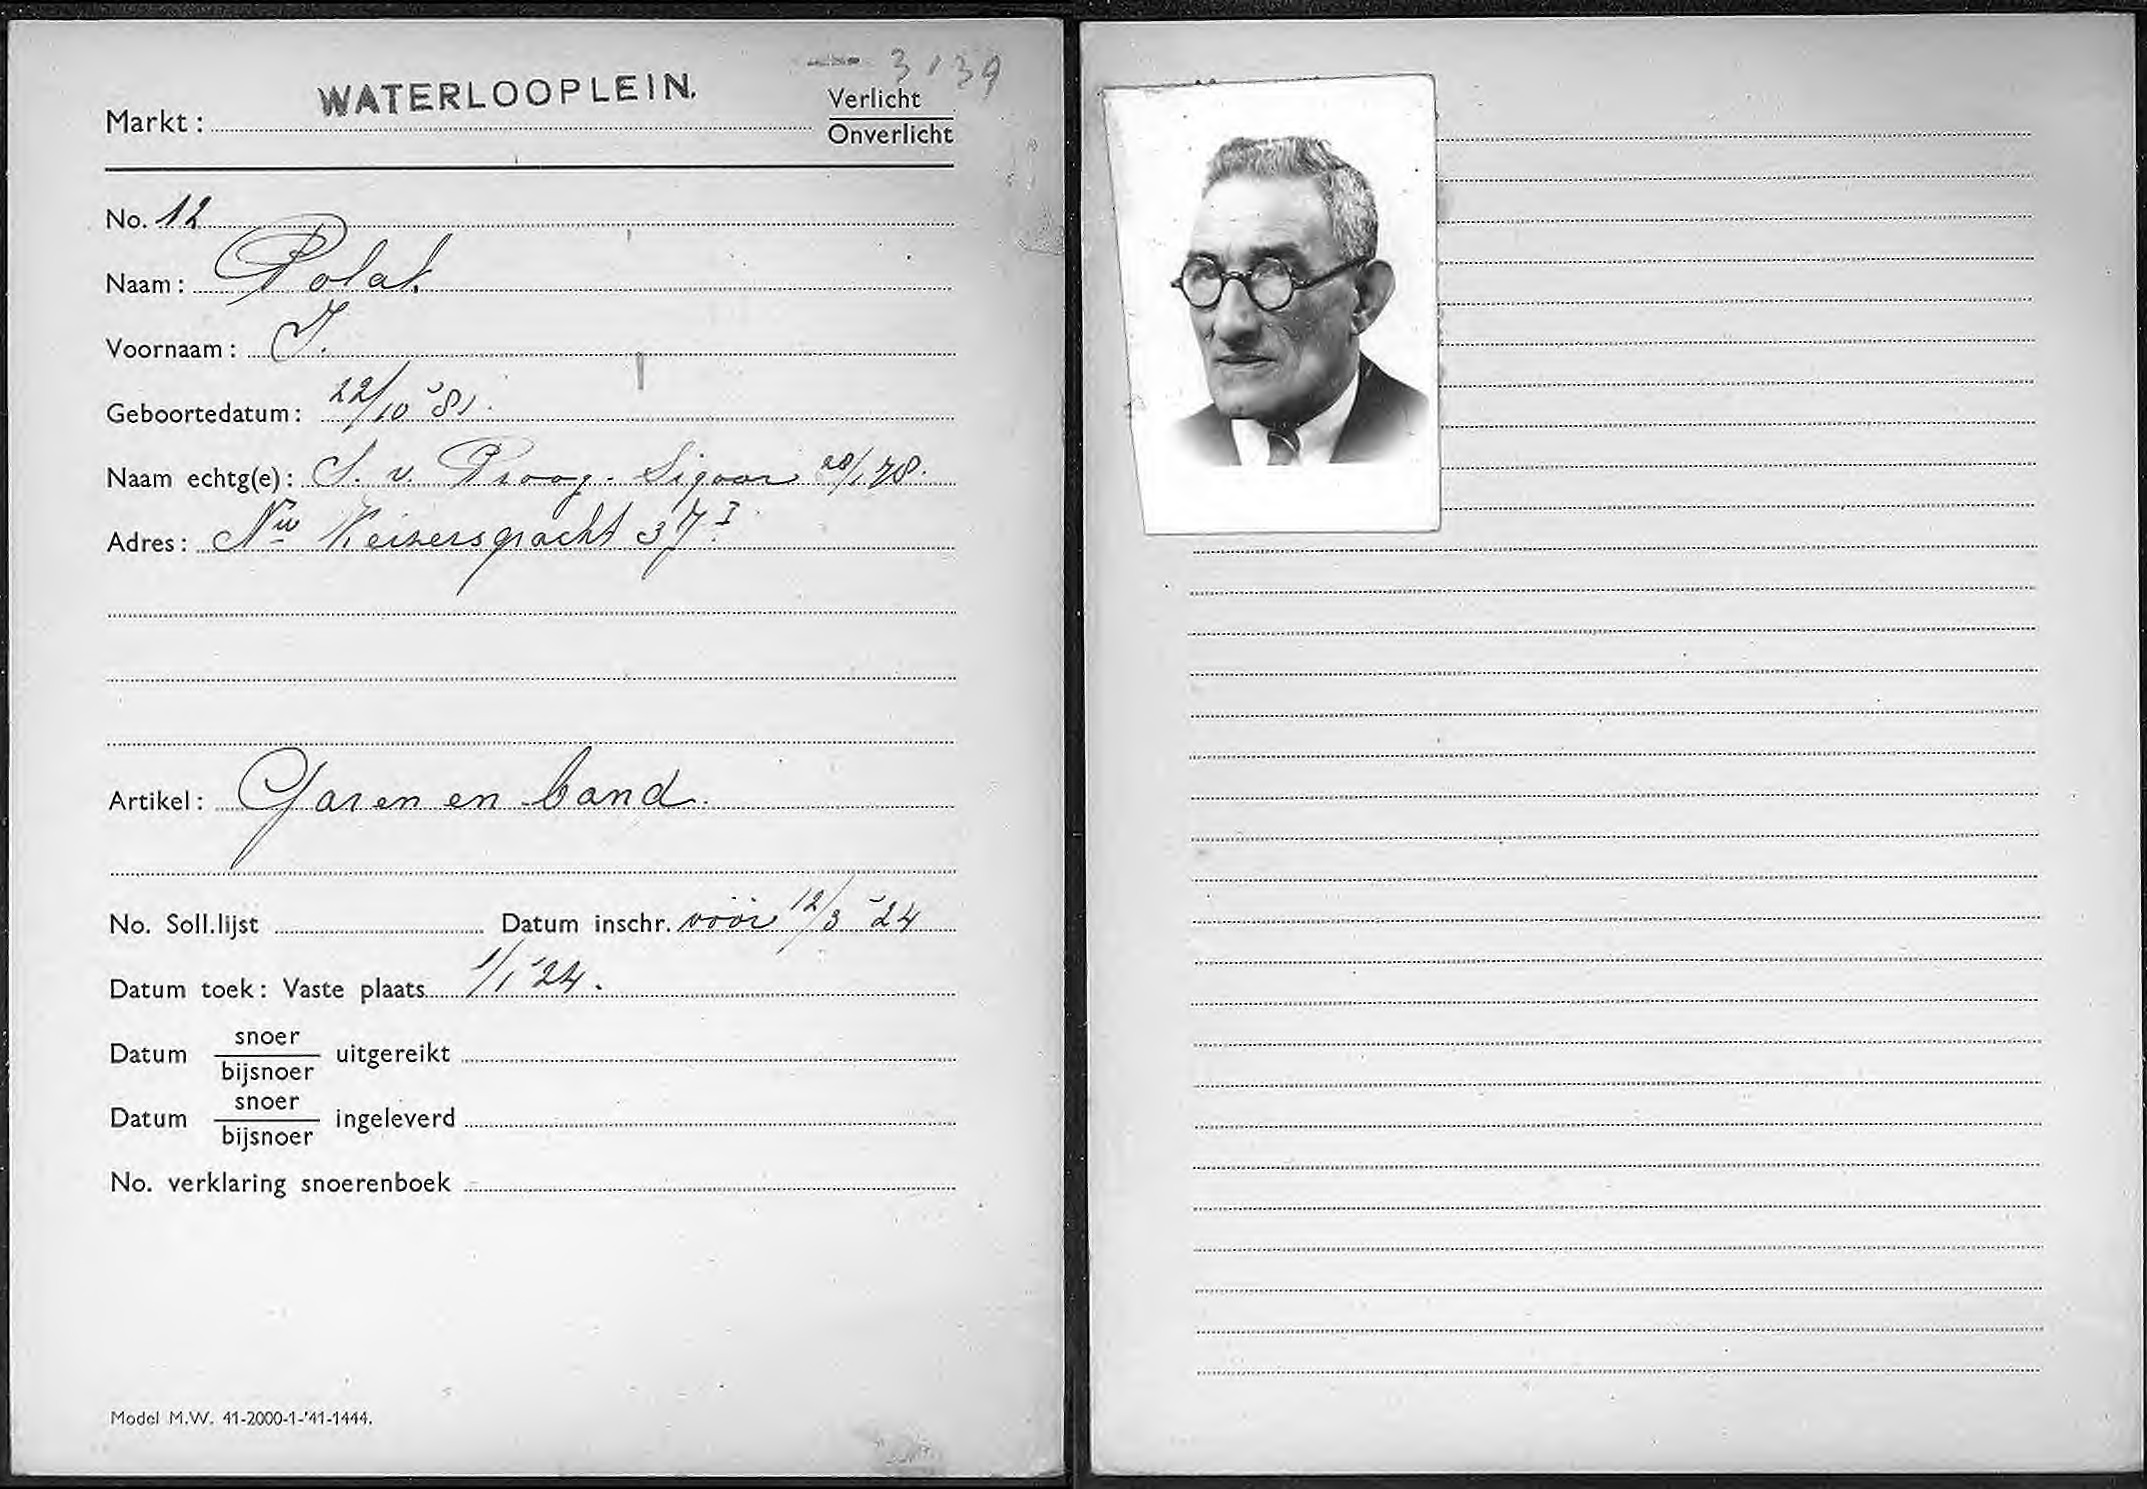 3139
WATERLOOPLEIN.
Markt:
Verlicht
Onverlicht
No. 12
Naam: Polak
Voornaam: I.
Geboortedatum: 22/10 '81.
Naam echtg(e): S. v. Praag- Sigaar 28/1 78.
Adres: Nw Keizersgracht 37 I
Artikel: Garen en band.
No. Soll.lijst Datum inschr. vóór 12/3 '24
Datum toek: Vaste plaats 1/1 '24.
Datum snoer/bijsnoer uitgereikt
Datum snoer/bijsnoer ingeleverd
No. verklaring snoerenboek
Model M.W. 41-2000-1-'41-1444.